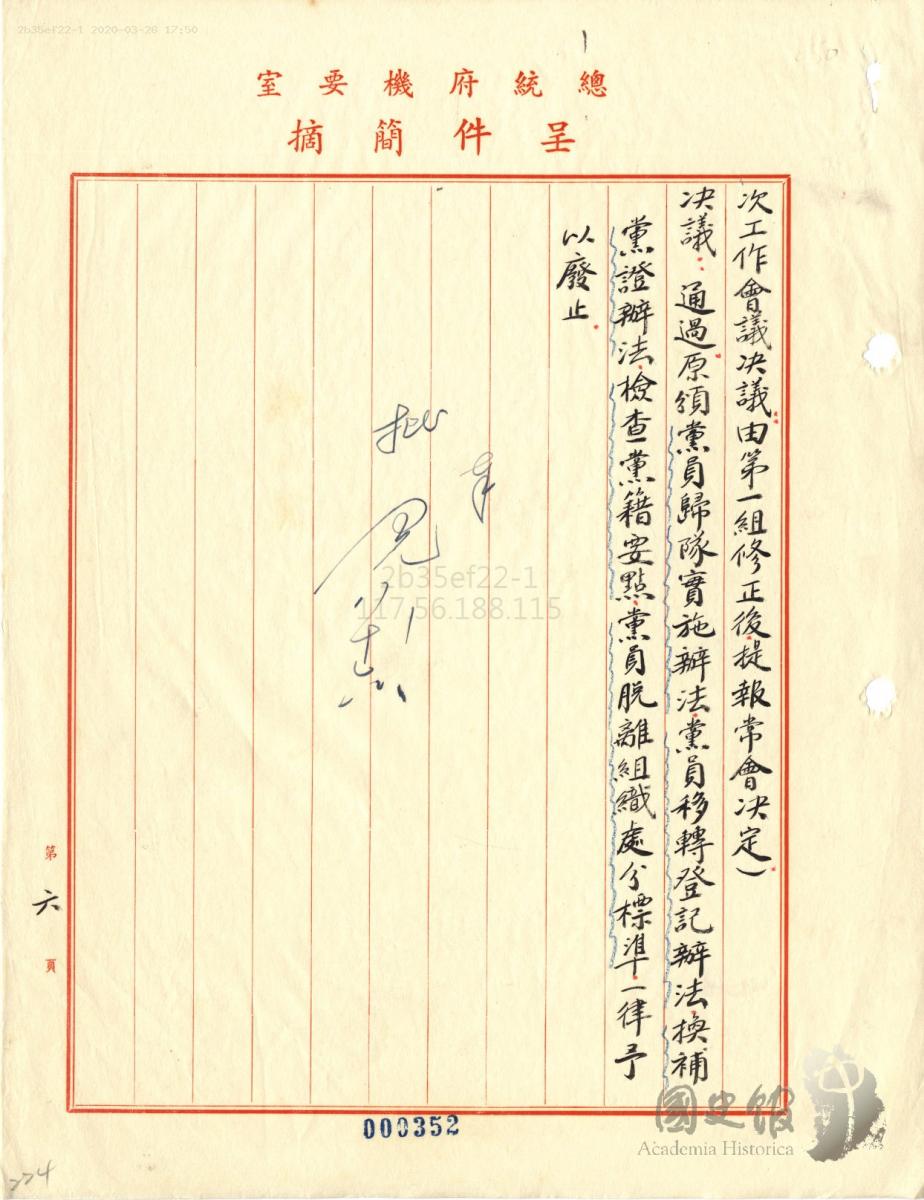 2b35ef22-1 2020-03-26 17:50
總統府機要室
呈件簡摘
次工作會議决議由第一組修正後提報常會决定）
决議：通過原頒黨員歸隊實施辦法黨員移轉登記辦法換補
黨證辦法檢查黨籍要點黨員脫離組織處分標準一律予
以廢止
奉
批
2b35ef22-1
117.56.188.115
第六頁
000352
國史館
Academia Historica
224